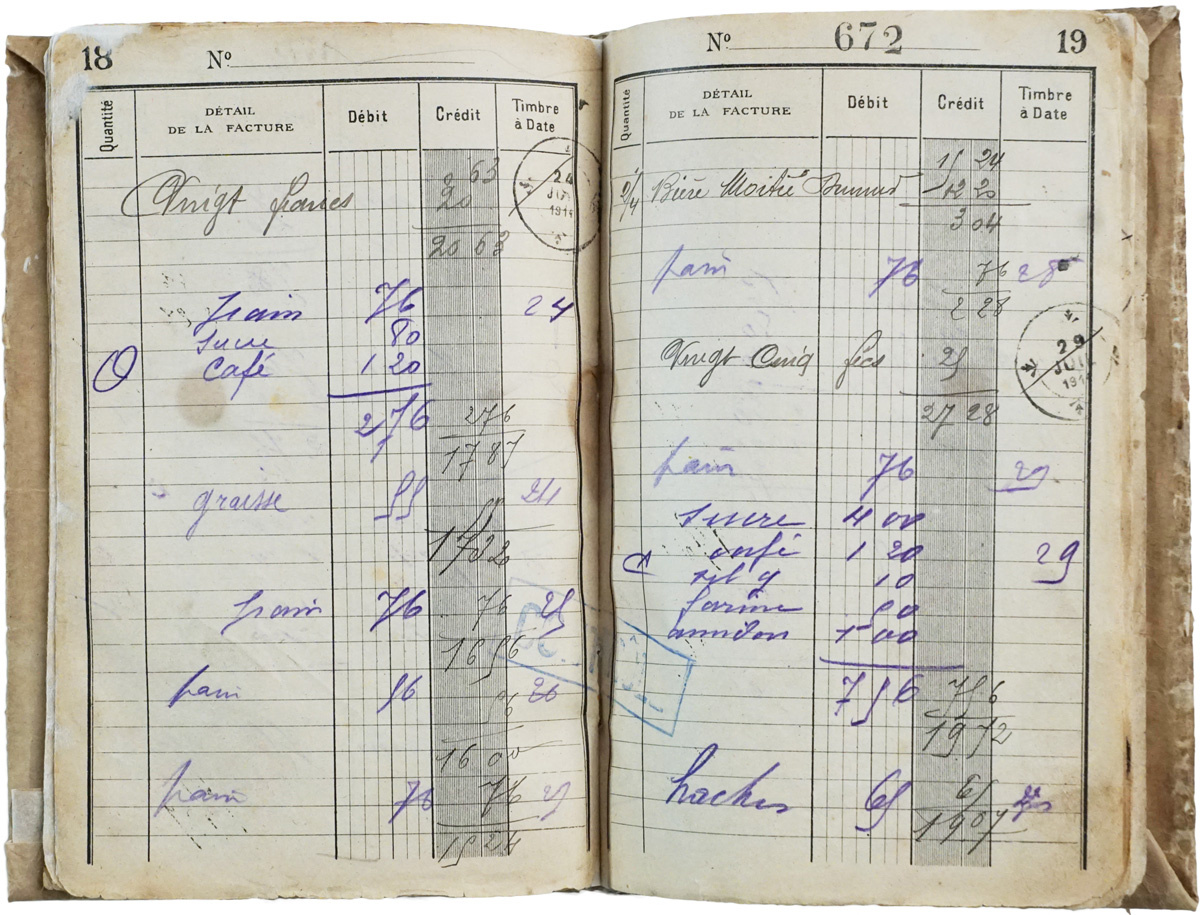 18 Nº
Quantité DÉTAIL DE LA FACTURE Débit Crédit Timbre à Date
63
Vingt francs 20
24 1914
20 63
pain 76 24
sucre 80
café 1 20
2 76 2 76
17 87
graisse 55 24
55
17 32
pain 76 76 25
16 56
pain 56 56 26
16 00
pain 76 76
15 24
Nº 672 19
Quantité DÉTAIL DE LA FACTURE Débit Crédit Timbre à Date
15 24
2/4 Bière Moitié 12 20
3 04
pain 76 76 28
2 28
Vingt Cinq fcs 25
29 JUIL 191
27 28
pain 76 29
sucre 4 00
café 1 20 29
10
farine
amidon 1 00
7 56 7 56
19 72
65 65
19 07